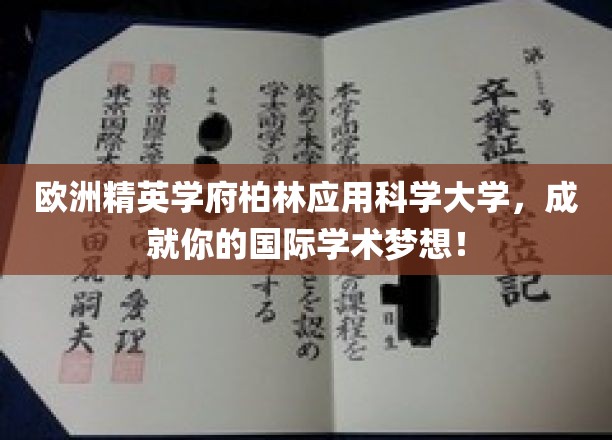 欧洲精英学府柏林应用科学大学，成
就你的国际学术梦想！
第 号
卒業証書 学位記
本学商学部 定の課程を
修めて本学 ことを認め
学士(商学)の学 する
平成
東京国際大学
村愛理
東京国際大学
長田尻嗣夫